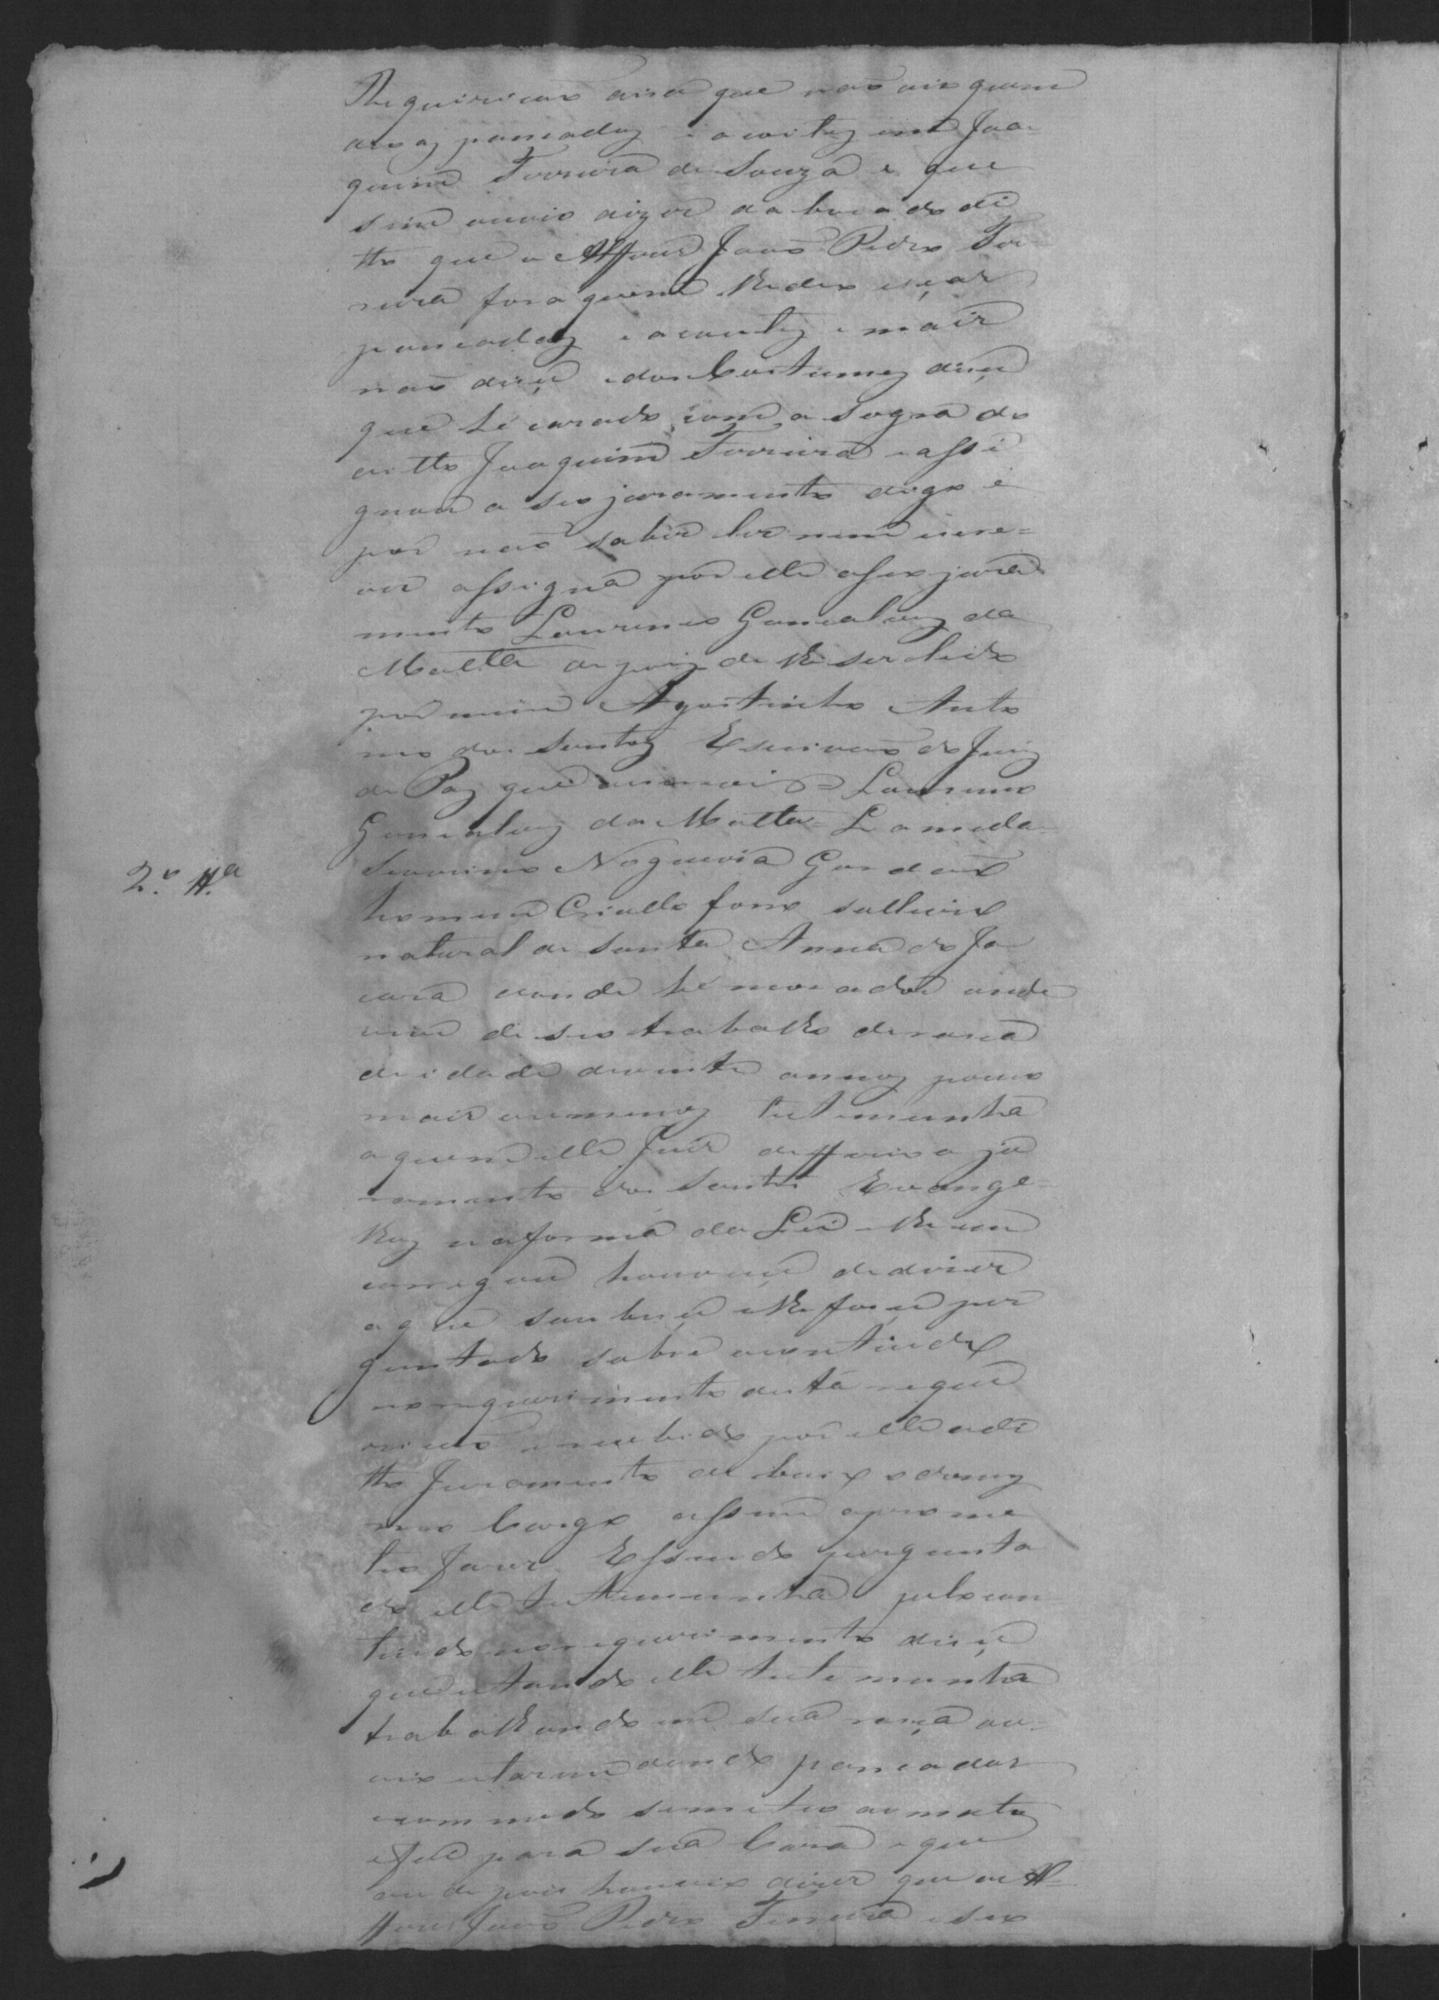 Requiricaõ disce que naõ vio quem
desse as pancadas e acoites em Joa-
quim Ferreira de Souza e que
sim ouvio dizer da boca do di
tto que o Alferes Joaõ Pedro Fer
reira fora quem lhe deo esçar
pancadas e acoutes e mais
naõ diçe e dos Custumes diçe
que hé cazado com a sogra do
ditto Joaquim Ferreira e assi
gnou o seo juramento digo e
por naõ saber ler nem escre-
ver assigna por elle o seo jura
mento Lourenço Goncalves da
Motta depois de lhe ser lido
por mim Agostinho Anto
nio dos Santos Escrivaõ do Juiz
de Paz que escrevi = Lourenço
Goncalves da Motta =
2.ª tt.ª
Severino Nogueira
homem Criollo forro solteiro
natural de Santa Anna do Ja
cara donde hé morador onde
vive de seo trabalho de roça
de idade de vinte annos pouco
mais ou menos testemunha
a quem elle Juis defferio o ju
ramento dos Santos Evange-
lhos na forma da Lei e lhe en
carregou houveçe de dizer
o que soubeçe e lhe foçe per
guntado sobre o contiudo
no requerimento desta requi
ricaõ e recebido por elle o di
tto Juramento de baixo do mes
mo Cargo assim o prome
teo fazer. E ssendo pergunta
do elle testemunha pelo con
tiudo no requerimento diçe
que estando elle testemunha
trabalhando em sua roça ou-
vio estarem dando pancadas
e com medo se meteo ao mato
e foi para sua Caza e que
ao depois houvio dizer que o Al-
feres Joaõ Pedro Ferreira e seo